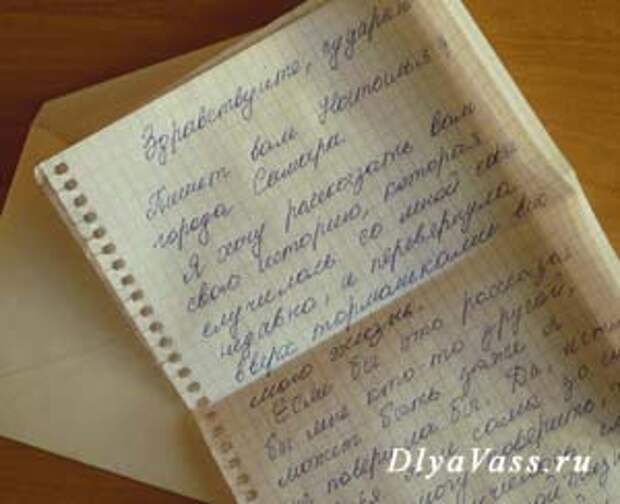 Здравствуйте,
Пишет вам Настасья
города Самара.
Я хочу рассказать вам
свою историю, которая
случилась со мной
недавно, и перевернула
вверх тормашками всю
мою жизнь.
Если бы это рассказал
бы мне кто-то другой,
может быть даже я
не поверила бы. Да,
сама
DlyaVass.ru